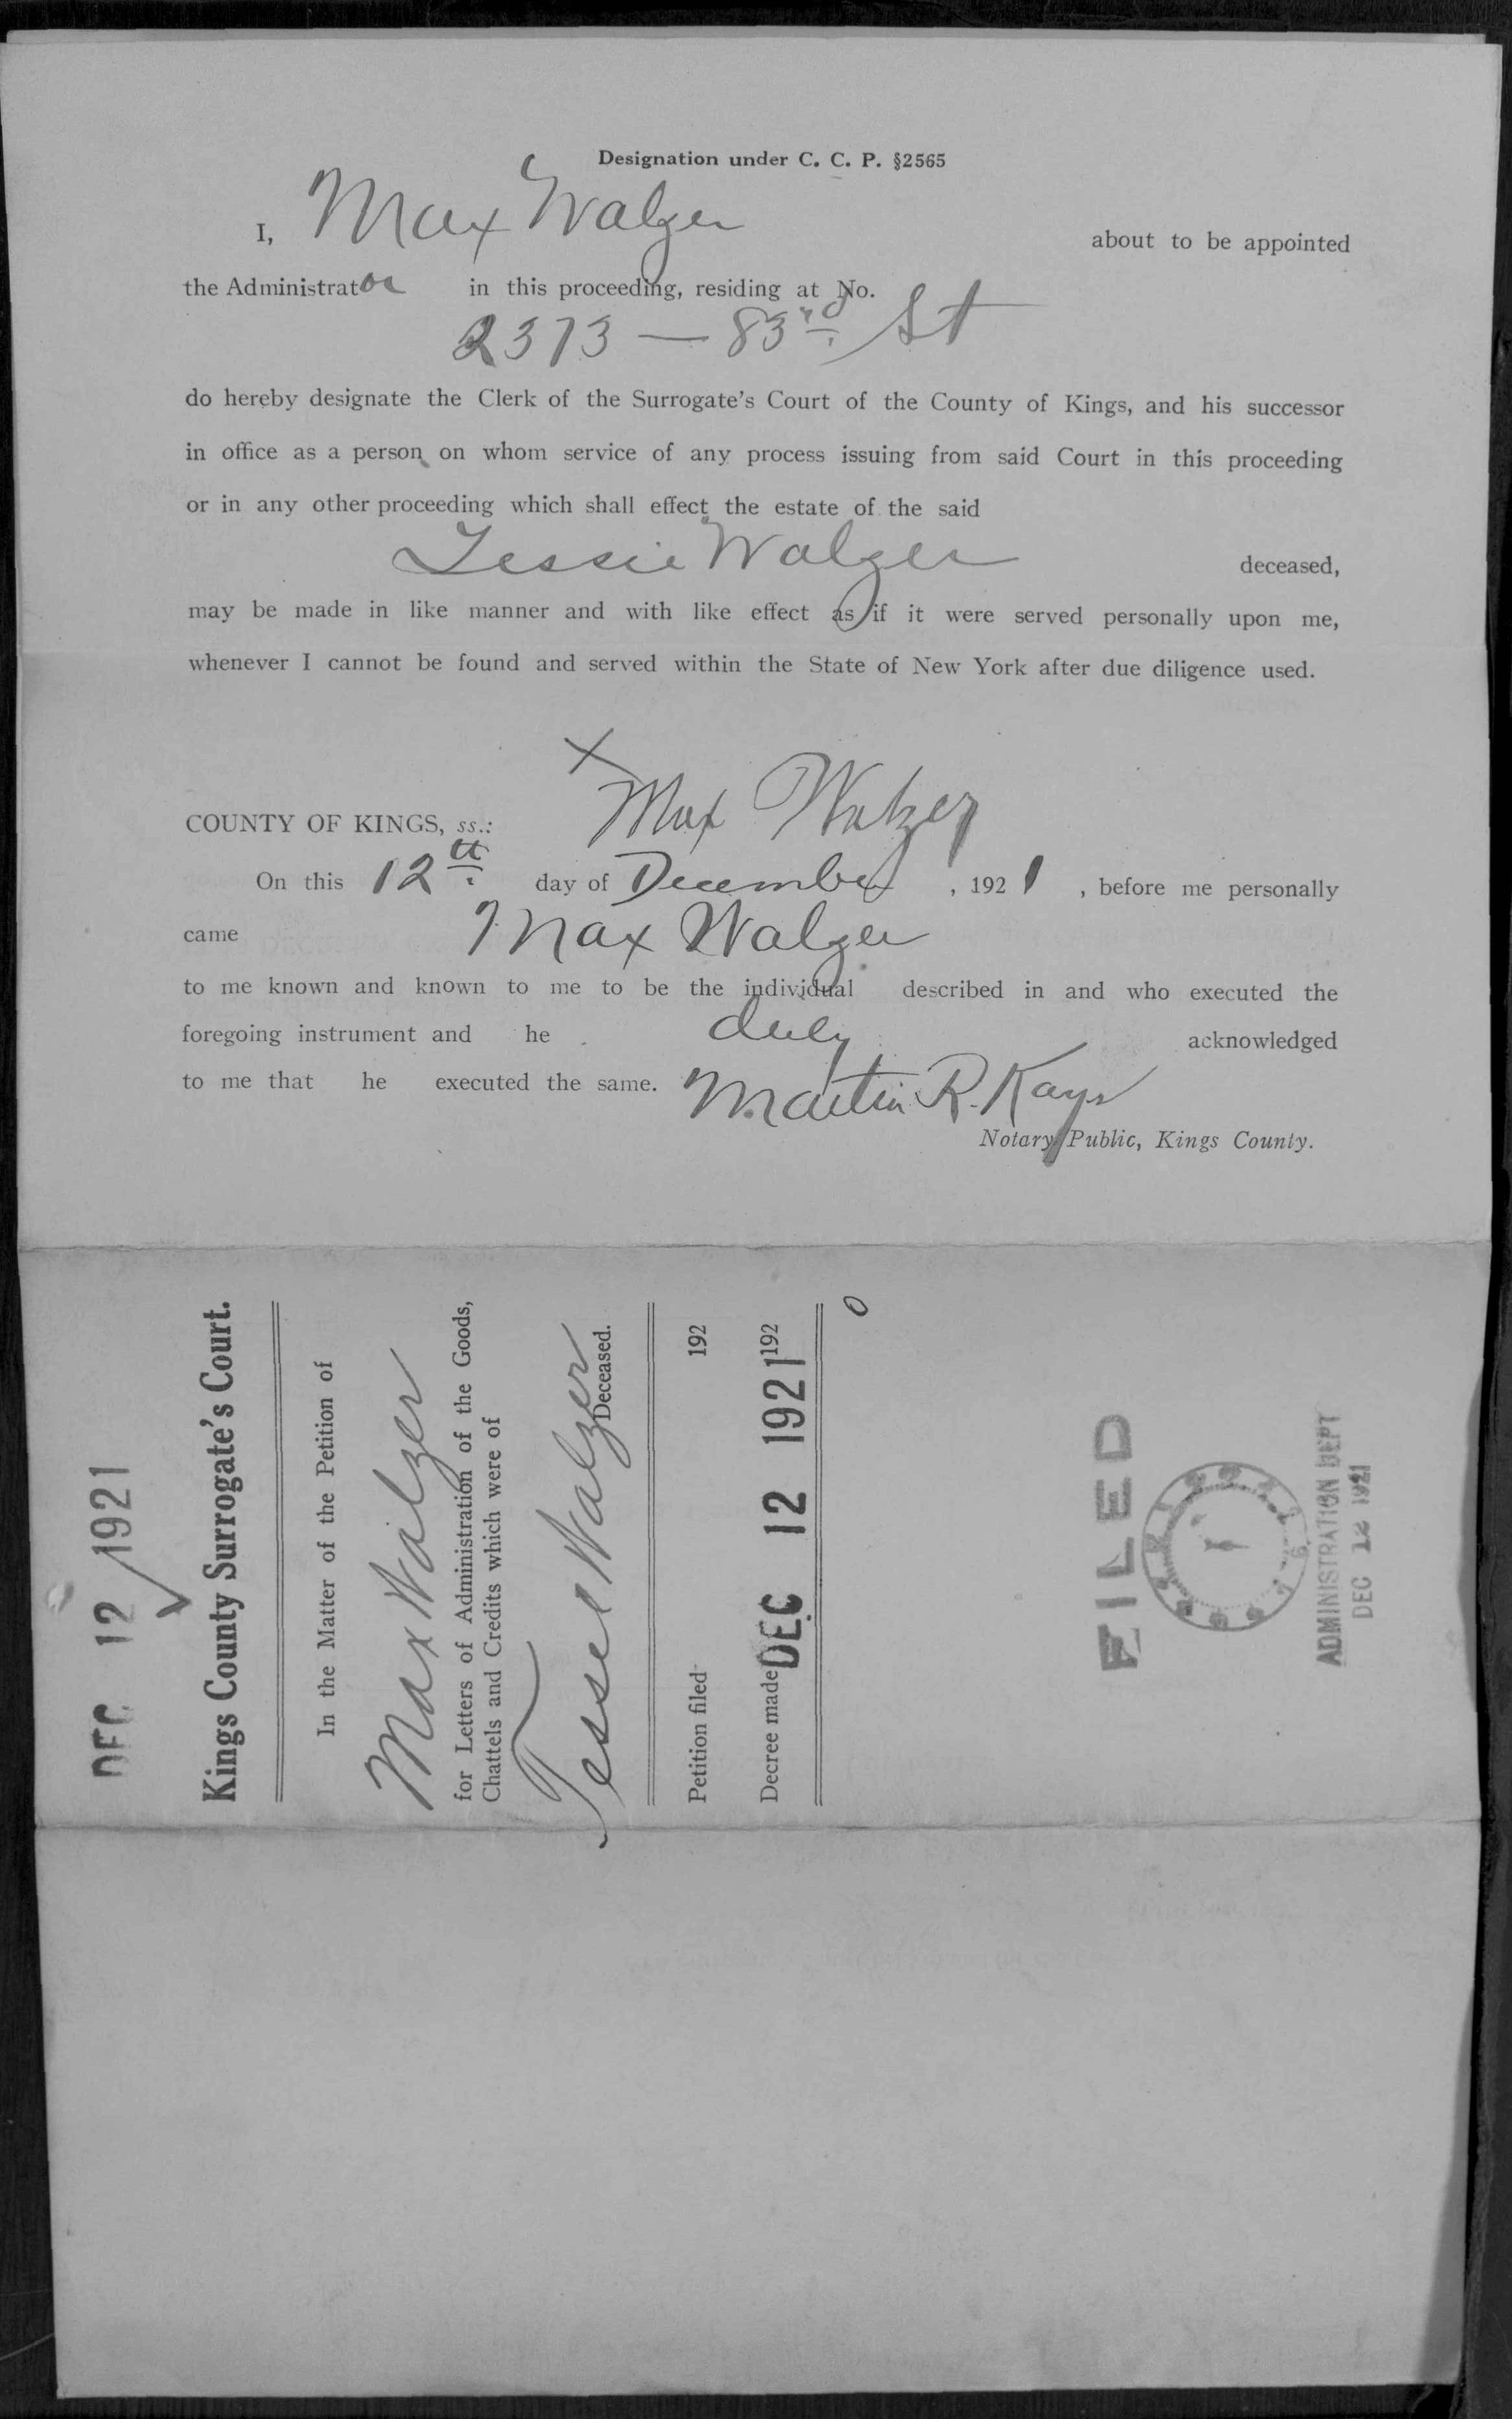 Designation under C. C. P. §2565
I, Max Walzer about to be appointed
the Administrator in this proceeding, residing at No.
2373 — 83rd St
do hereby designate the Clerk of the Surrogate's Court of the County of Kings, and his successor
in office as a person on whom service of any process issuing from said Court in this proceeding
or in any other proceeding which shall effect the estate of the said
Tessie Walzer deceased,
may be made in like manner and with like effect as if it were served personally upon me,
whenever I cannot be found and served within the State of New York after due diligence used.
X Max Walzer
COUNTY OF KINGS, ss.:
On this 12th day of December, 1921, before me personally
came Max Walzer
to me known and known to me to be the individual described in and who executed the
foregoing instrument and he duly acknowledged
to me that he executed the same. Martin R. Kays
Notary Public, Kings County.
DEC 12 1921
Kings County Surrogate's Court.
In the Matter of the Petition of
Max Walzer
for Letters of Administration of the Goods,
Chattels and Credits which were of
Tessie Walzer
Deceased.
Petition filed 192
Decree made DEC 12 1921 192
FILED
ADMINISTRATION DEPT
DEC 12 1921